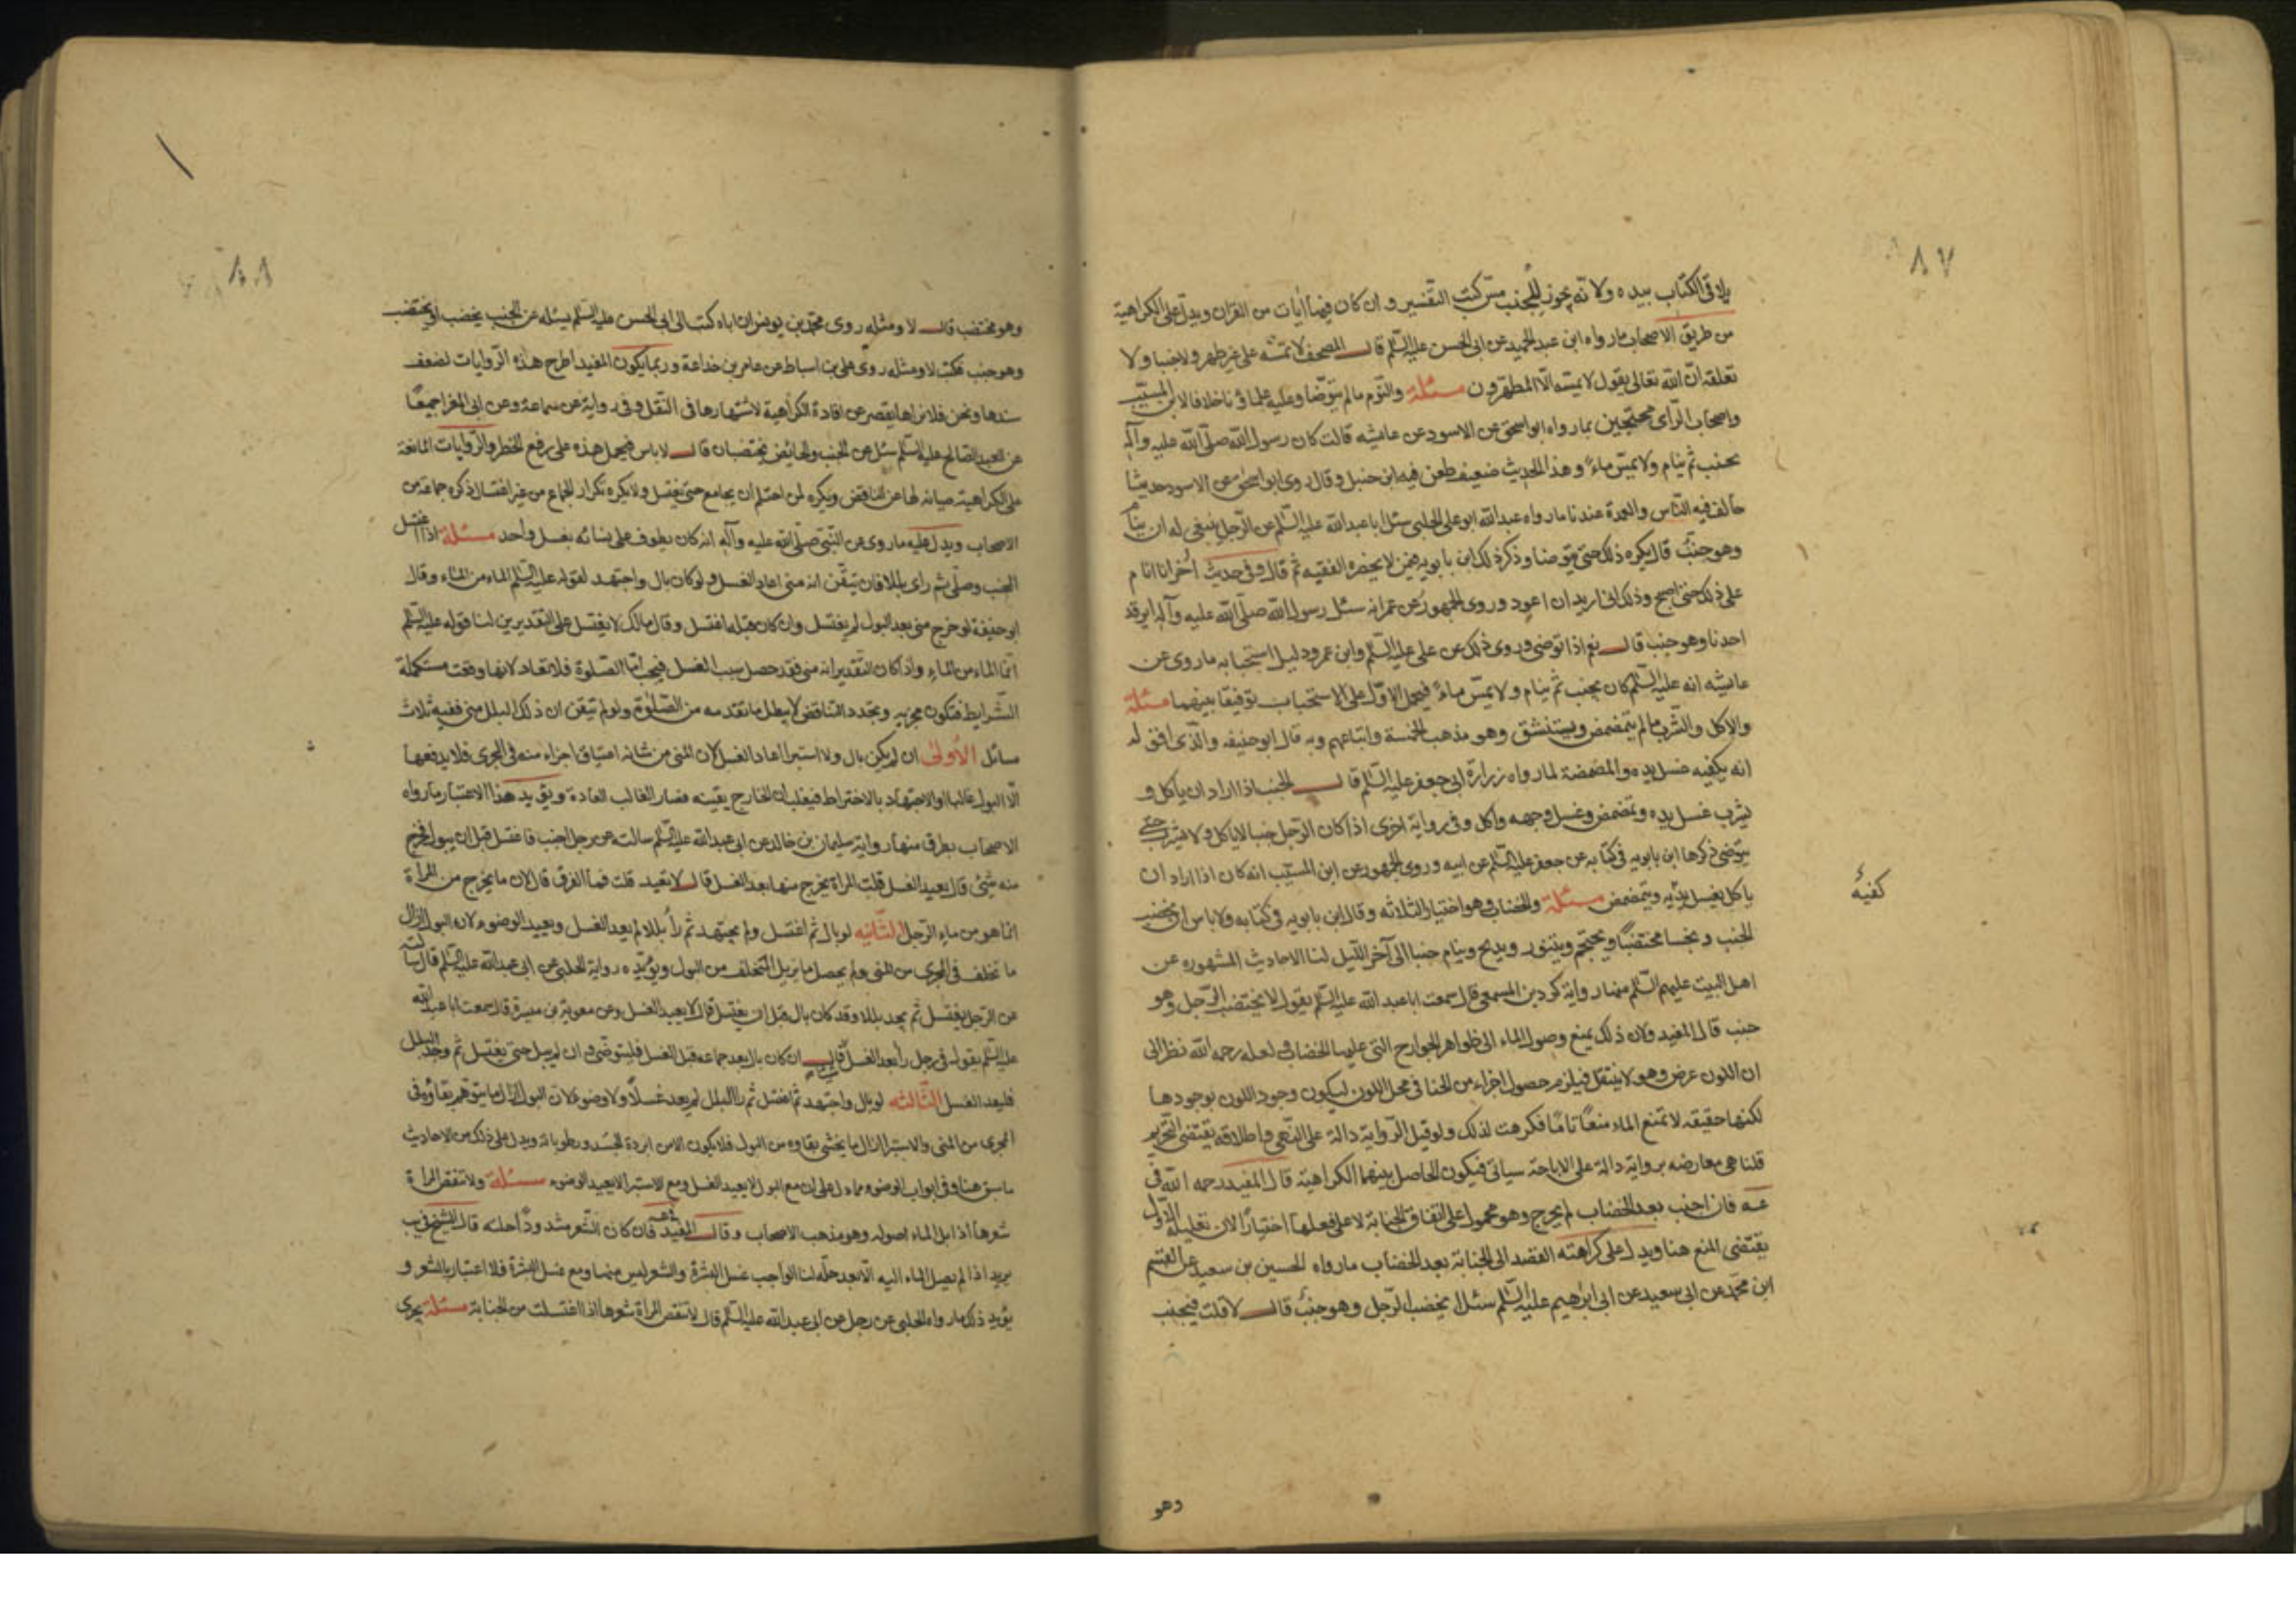 ٨٧
يلاقى الكتاب بيده ولانّه يجوز للجنب مسّ كتب التفسير وان كان فيها آيات من القران ويدلّ على الكراهية
من طريق الاصحاب مارواه ابن عبد الحميد عن ابى الحسن عليه السّلم قال المصحف لا تمسّه على غير طهر ولا جنبا ولا
تعلقه انّ الله تعالى يقول لا يمسّه الّا المطهّرون مسئلة والنّوم مالم يتوضّا وعليه علماؤنا خلافا لابن المسيّب
واصحاب الرّاى محتجين بمارواه ابو اسحق عن الاسود عن عايشه قالت كان رسول الله صلّى الله عليه وآله
يجنب ثم ينام ولا يمسّ ماءً وهذا الحديث ضعيف طعن فيه ابن حنبل وقال روى ابو اسحق عن الاسود حديثا
خالف فيه النّاس والعمدة عندنا مارواه عبد الله ابو على الحلبى سئل ابا عبد الله عليه السّلم عن الرّجل ينبغى له ان ينام
وهو جنبٌ قال يكره ذلك حتى يتوضا وذكر ذلك ابن بابويه فيمن لا يحضره الفقيه ثم قال وفى حديث اُخر انا انام
على ذلك حتى اصبح وذلك انى اريد ان اعود وروى الجمهور عن عمر انه سئل رسول الله صلّى الله عليه وآله ايرقد
احدنا وهو جنب قال نعم اذا توضى وروى ذلك عن على عليه السّلم وابن عمر ودليل استحبابه ماروى عن
عايشه انه عليه السّلم كان يجنب ثم ينام ولا يمسّ ماءً فيحمل الاوّل على الاستحباب توفيقا بينهما مسئلة
والاكل والشّرب مالم يتمضمض ويستنشق وهو مذهب الخمسة واتباعهم وبه قال ابو حنيفه والّذى افتى له
انه يكفيه غسل يده والمضمضة لمارواه زرارة ابى جعفر عليه السّلم قال الجنب اذا اراد ان ياكل و
يشرب غسل يده وتمضمض وغسل وجهه واكل وفى رواية اخرى اذا كان الرّجل جنبا لا ياكل ولا يشرب حتى
يتوضى ذكرها ابن بابويه فى كتابه عن جعفر عليه السّلم عن ابيه وروى الجمهور عن ابن المسيّب انه كان اذا اراد ان
ياكل يغسل يديه ويتمضمض مسئلة والخضاب وهو اختيار الثلاثه وقال ابن بابويه فى كتابه ولا باس ان يختضب
كفيهُ
الجنب و مختضبًا ويحتجم ويتنور ويذبح وينام جنبا الى آخر اللّيل لنا الاحاديث المشهوره عن
اهل البيت عليهم السّلم منها رواية كردين المسمعى قال سمعت ابا عبد الله عليه السّلم يقول لا يختضب الرّجل وهو
جنب قال المفيد ولان ذلك يمنع وصول الماء الى ظواهر الجوارح التى عليها الخضاب ولعله رحمه الله نظر الى
ان اللون عرض وهو لا ينتقل فيلزم حصول اجزاء من الحنا فى محل اللون ليكون وجود اللون بوجودها
لكنها حقيقه لا تمنع الماء منعًا تامًّا فكرهت لذلك ولو قيل الرّواية دالة على النّهى واطلاقه يقتضى التّحريم
قلنا هى معارضه برواية دالة على الاباحة سياتى فيكون الحاصل بينهما الكراهية قال المفيد رحمه الله فى
عه فان اجنب بعد الخضاب لم يحرج وهو محمول على اتفاق الجنابة لا على فعلها اختيارًا لان تعليله الاول
يقتضى المنع هنا ويدل على كراهته القصد الى الجنابة بعد الخضاب مارواه الحسين بن سعيد عن القسم
ابن محمّد عن ابى سعيد عن ابى ابرهيم عليه السّلم سئل ايخضب الرّجل وهو جنبٌ قال لا قلت فيجنب
وهو
٨٨
وهو مختضب قال لا ومثله روى محمّد بن يونس ان اباه كتب الى ابى الحسن عليه السّلم يسئله عن الجنب يخضب او يختضب
وهو جنب فكتب لا ومثله روى على بن اسباط عن عامر بن خداعة وربما يكون المفيد اطرح هذه الرّوايات لضعف
سندها ونحن فلا نراها يقصر عن افادة الكراهية لاشتهارها فى النّقل وفى رواية عن سماعة وعن ابى المغرا جميعًا
عن العبد الصّالح عليه السّلم سئل عن الجنب والحائض يختضبان قال لا باس فيحمل هذه على رفع الخطر والرّوايات المانعة
على الكراهية صيانة لها عن التناقض ويكره لمن احتلم ان يجامع حتى يغتسل ولا يكره تكرار الجماع من غير اغتسال ذكره جماعة من
الاصحاب ويدل عليه ماروى عن النّبى صلّى الله عليه وآله انه كان يطوف على نسائه بغسل واحد مسئلة اذا اغتسل
الجنب وصلّى ثم راى بللا فان تيقّن انه منى اعاد الغسل ولو كان بال واجتهد لقوله عليه السّلم الماء من الماء وقال
ابو حنيفة لو خرج منى بعد البول لم يغتسل وان كان قبله اغتسل وقال مالك لا يغتسل على التقديرين لنا قوله عليه السّلم
انّما الماء من الماء واذا كان التقدير انه منى فقد حصل سبب الغسل فيجب امّا الصّلوة فلا تعاد لانها وقعت مستكملة
الشّرايط فتكون مجزيه وتجدد الناقض لا يبطل ماتقدمه من الصّلوة ولو لم تيقن ان ذلك البلل منى ففيه ثلاث
مسائل الأولى ان لم يكن بال ولا استبرا اعاد الغسل لان المنى من شانه اعتياق اجزاء منه فى المجرى فلا يدفعها
الّا البول غالبا او الاجتهاد بالاختراط فيغلب ان الخارج بقيته فصار الغالب العادة ويؤيد هذا الاعتبار مارواه
الاصحاب بطرق منها رواية سليمان بن خالد عن ابى عبد الله عليه السّلم سالت عن رجل اجنب فاغتسل قبل ان يبول فخرج
منه شئى قال يعيد الغسل قلت المراة يخرج منها بعد الغسل قال لا تعيد قلت فما الفرق قال لان ما يخرج من المراة
انما هو من ماء الرّجل الثّانيه لو بال ثم اغتسل ولم يجتهد ثم رأ بللا لم يعد الغسل ويعيد الوضوء لان البول ازال
ما تخلف فى المجرى من المنى ولم يحصل ما يزيل المتخلف من البول ويؤيّده رواية الحلبى عن ابى عبد الله عليه السّلم قال سألته
عن الرّجل يغتسل ثم يجد بللا وقد كان بال قبل ان يغتسل قال لا يعيد الغسل وعن معوية بن ميسرة قال سمعت ابا عبد الله
عليه السّلم يقول فى رجل رأ بعد الغسل شيئا قال ان كان بال بعد جماعه قبل الغسل فليتوضّى وان لم يبل حتى يغتسل ثم وجد البلل
فليعد الغسل الثّالثه لو بال واجتهد ثم اغتسل ثم رأ البلل لم يعد غسلًا ولا وضوء لان البول ازال ما يتوهم بقاؤه فى
المجرى من المنى والاستبرا ازال ما يخشى بقاوه من البول فلا يكون الا من ابردة الجسد ورطوباته ويدل على ذلك من الاحاديث
ما سبق هنا وفى ابواب الوضوء مما دل على ان مع البول لا يعيد الغسل ومع الاستبرا لا يعيد الوضوء مسئلة ولا تنقض المراة
شعرها اذا ابل الماء اصوله وهو مذهب الاصحاب وقال المفيد فى عه فان كان الشّعر مشدودًا حلته قال الشّيخ فى يب
يريد اذا لم يصل الماء اليه الّا بعد حلّه لنا الواجب غسل البشرة والشعر ليس منها ومع غسل البشرة فلا اعتبار بالشعر و
يؤيد ذلك مارواه الحلبى عن رجل عن ابى عبد الله عليه السّلم قال لا تنقض المراة شعرها اذا اغتسلت من الجنابة مسئلة يجرى